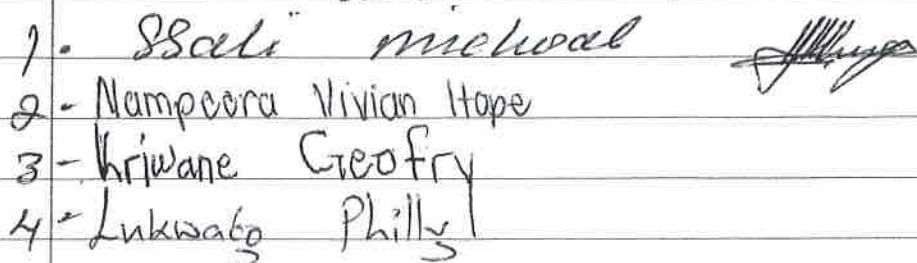 1. SSali michael
2 - Nampeera Vivian Hope
3 - Kriwane Geofry
4 - Lukwago Philly